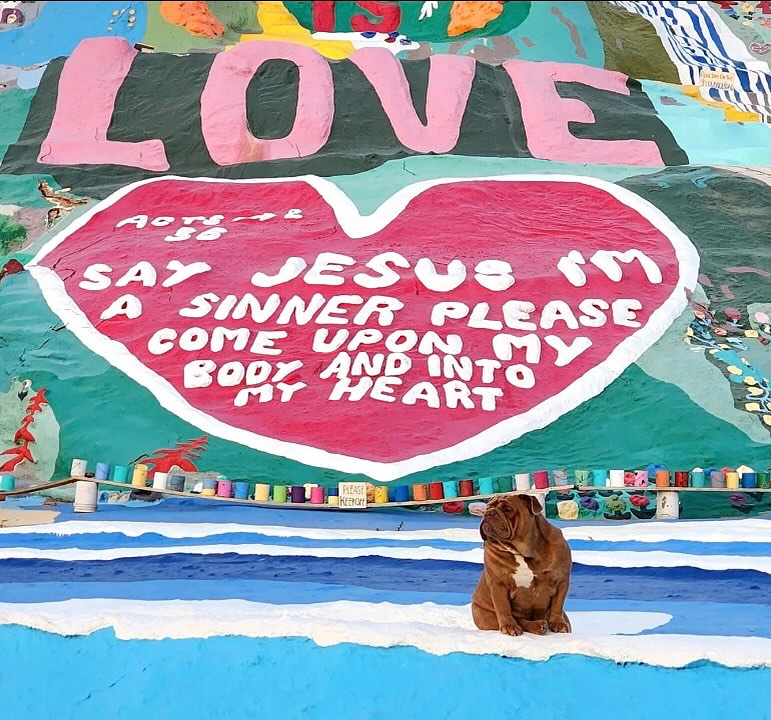 IS
LOVE
ACTS → 2
38
SAY JESUS I'M
A SINNER PLEASE
COME UPON MY
BODY AND INTO
MY HEART
PLEASE
KEEP OFF